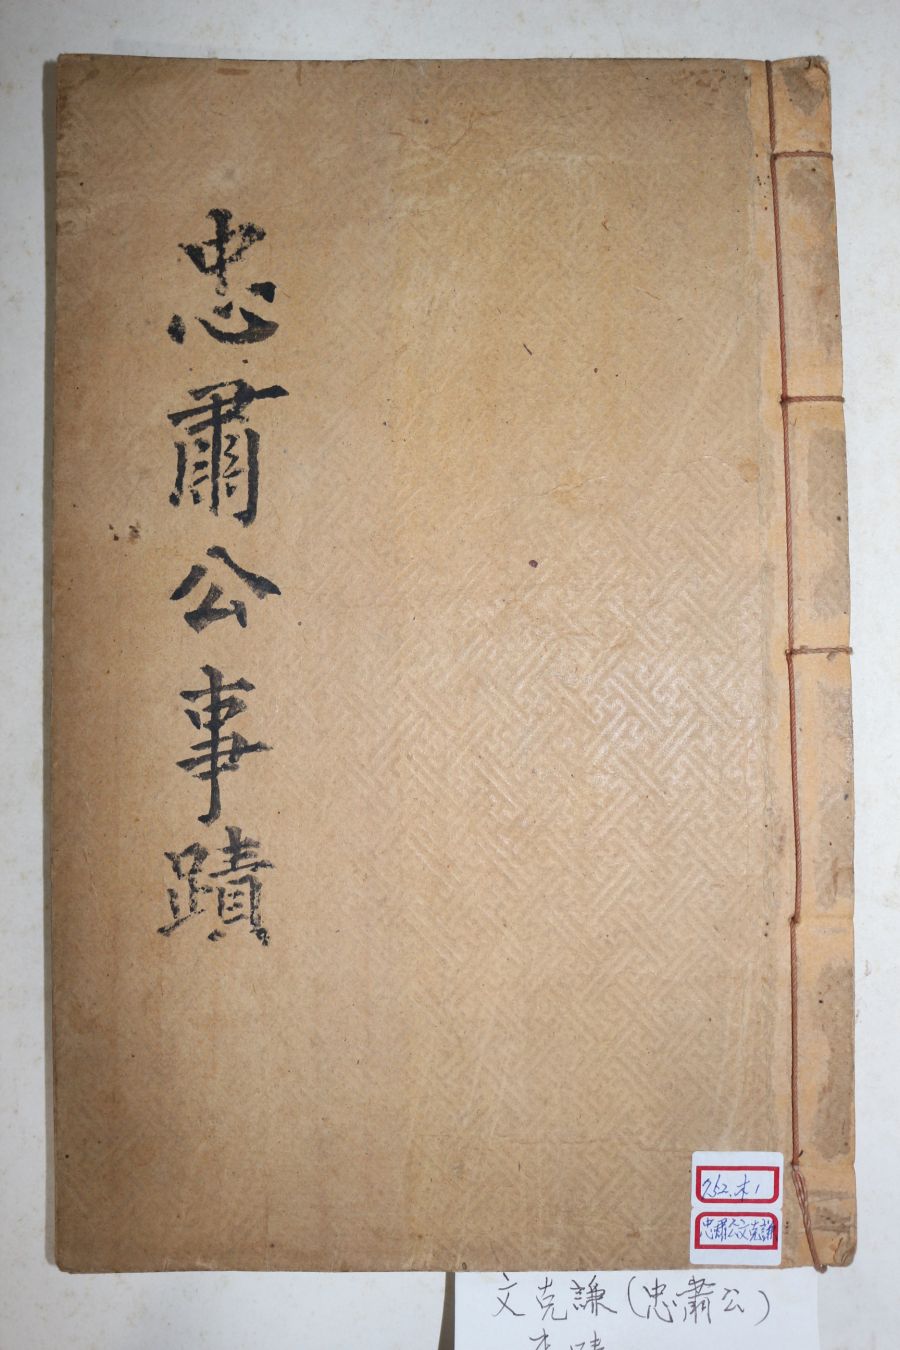 忠肅公事蹟
952.木1
忠肅公文克謙
文克謙(忠肅公)
事蹟